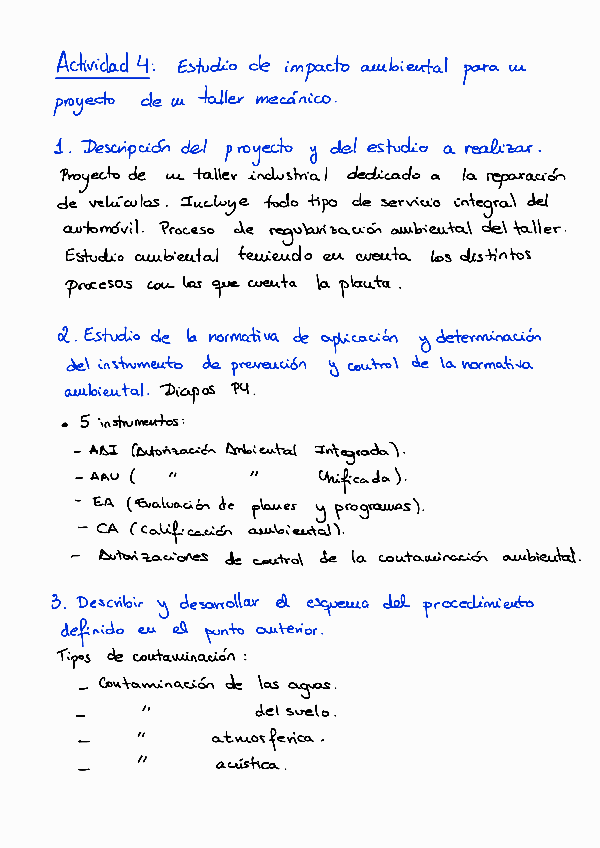 Actividad 4: Estudio de impacto ambiental para un
proyecto de un taller mecánico.
1. Descripción del proyecto y del estudio a realizar.
Proyecto de un taller industrial dedicado a la reparación
de vehículos. Incluye todo tipo de servicio integral del
automóvil. Proceso de regularización ambiental del taller.
Estudio ambiental teniendo en cuenta los distintos
procesos con los que cuenta la planta.
2. Estudio de la normativa de aplicación y determinación
del instrumento de prevención y control de la normativa
ambiental. Diapos P4.
• 5 instrumentos:
- AAI (Autorización Ambiental Integrada).
- AAU ( " " Unificada).
- EA (Evaluación de planes y programas).
- CA (Calificación ambiental).
- Autorizaciones de control de la contaminación ambiental.
3. Describir y desarrollar el esquema del procedimiento
definido en el punto anterior.
Tipos de contaminación:
- Contaminación de las aguas.
- " del suelo.
- " atmosferica.
- " acústica.